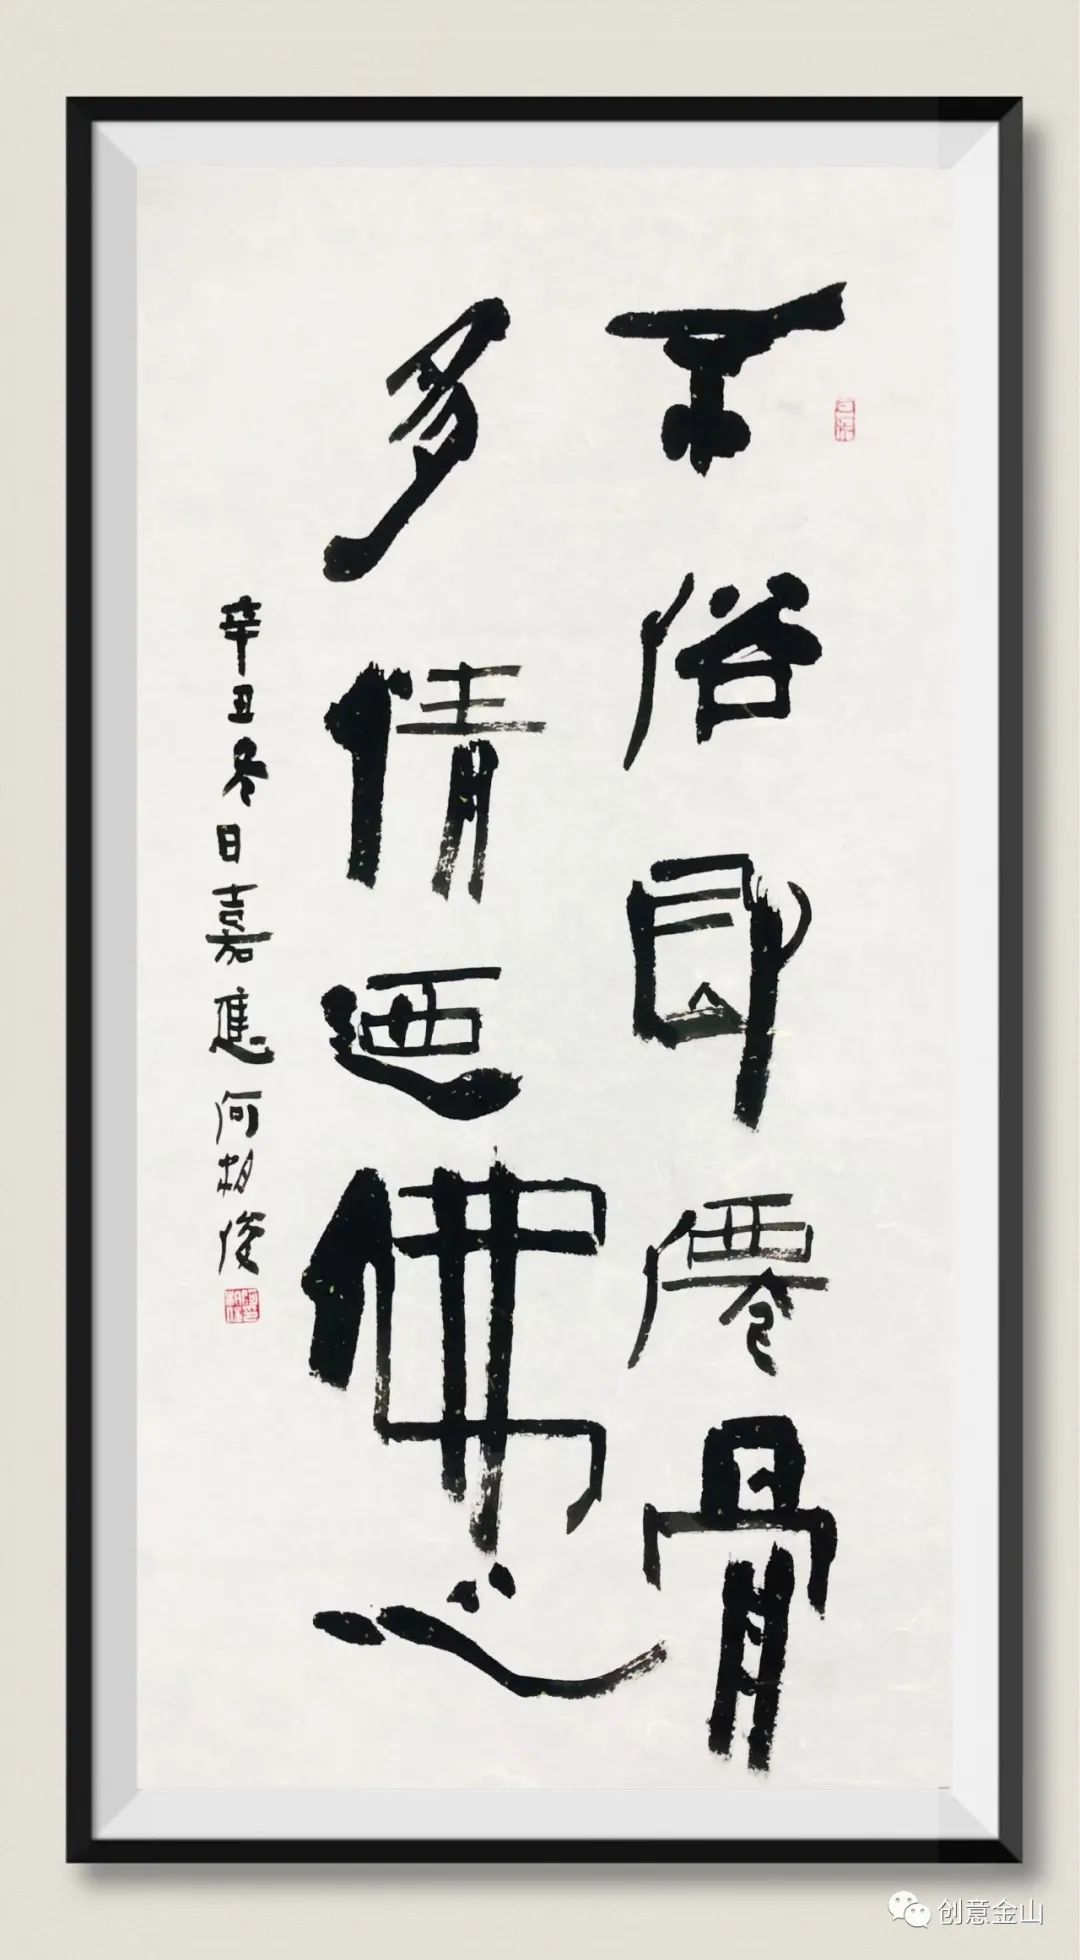 不俗即僊骨
多情迺佛心
辛丑冬日嘉應何相俊
创意金山